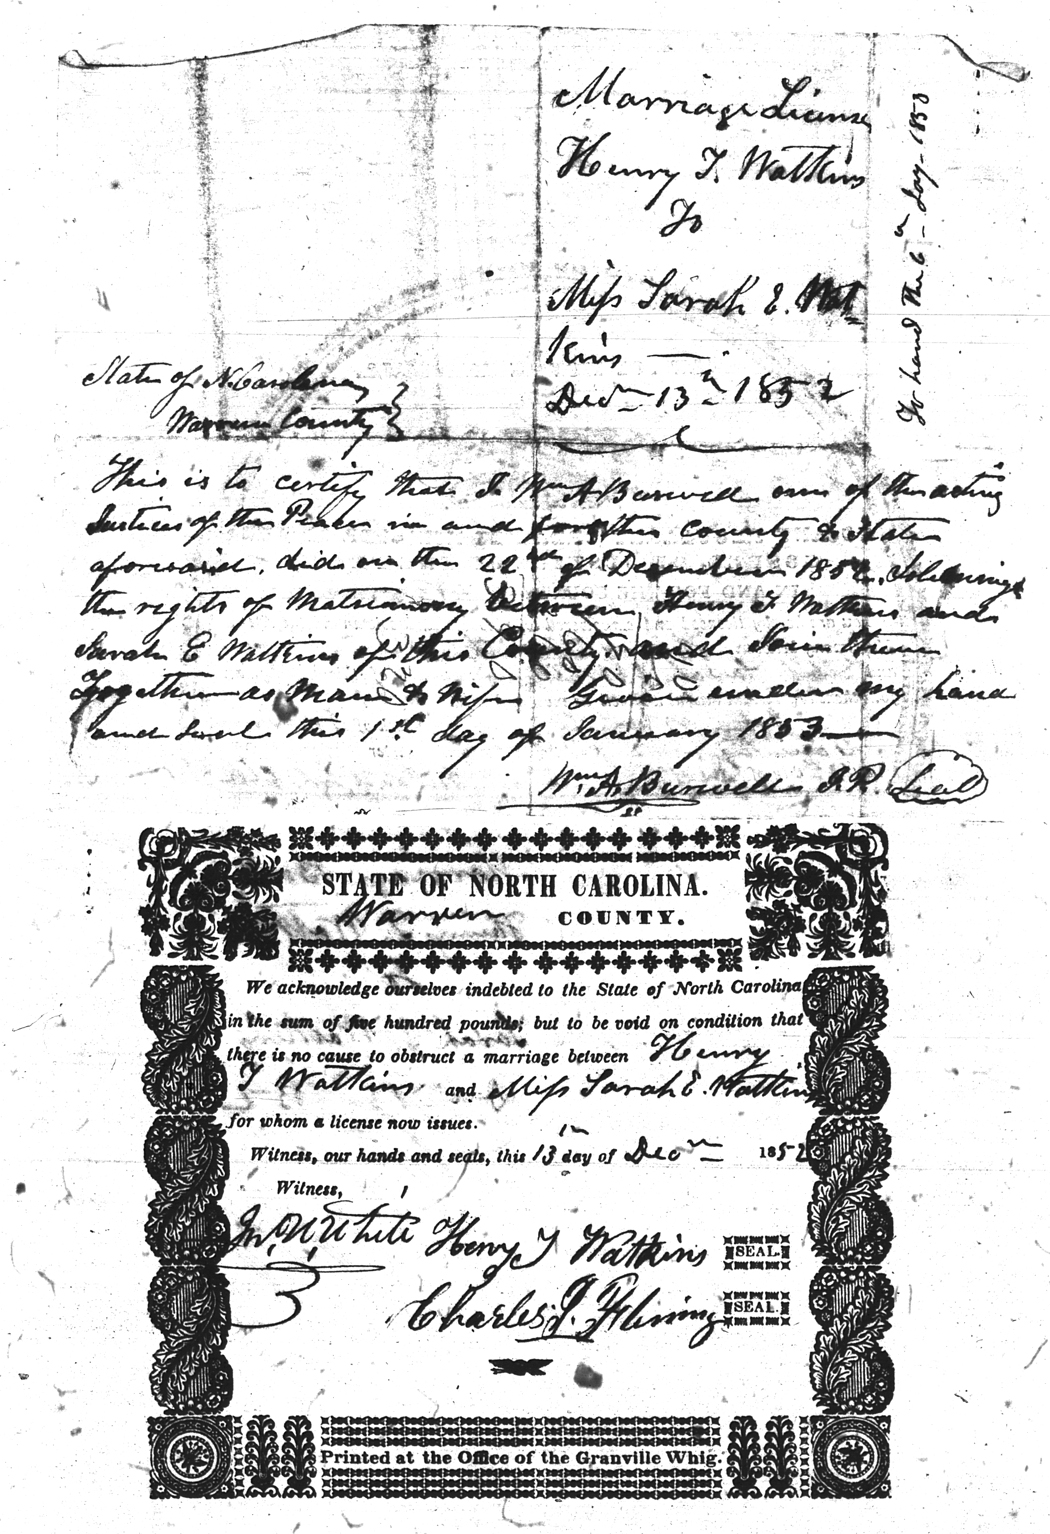 Marriage License
Henry T. Watkins
To
Miss Sarah E. Wat
kins
Decm 13th 1852
To hand The 6th day 1853
State of N. Carolina
Warren County
This is to certify that I Wm A Burwell one of the acting
Justices of the Peace in and for the County & State
aforesaid. did on the 22nd of December 1852. Solemnize
the rights of Matrimony between Henry T Watkins and
Sarah E Watkins of this County and Join them
Together as Man & Wife Given under my hand
and Seal this 1st day of January 1853
Wm A. Burwell J.P. Seal
STATE OF NORTH CAROLINA.
Warren COUNTY.
We acknowledge ourselves indebted to the State of North Carolina
in the sum of five hundred pounds; but to be void on condition that
there is no cause to obstruct a marriage between Henry
T Watkins and Miss Sarah E. Watkins
for whom a license now issues.
Witness, our hands and seals, this 13th day of Decm 1852
Witness,
Jno. W. White Henry T Watkins SEAL.
Charles J. Fleming SEAL.
Printed at the Office of the Granville Whig.